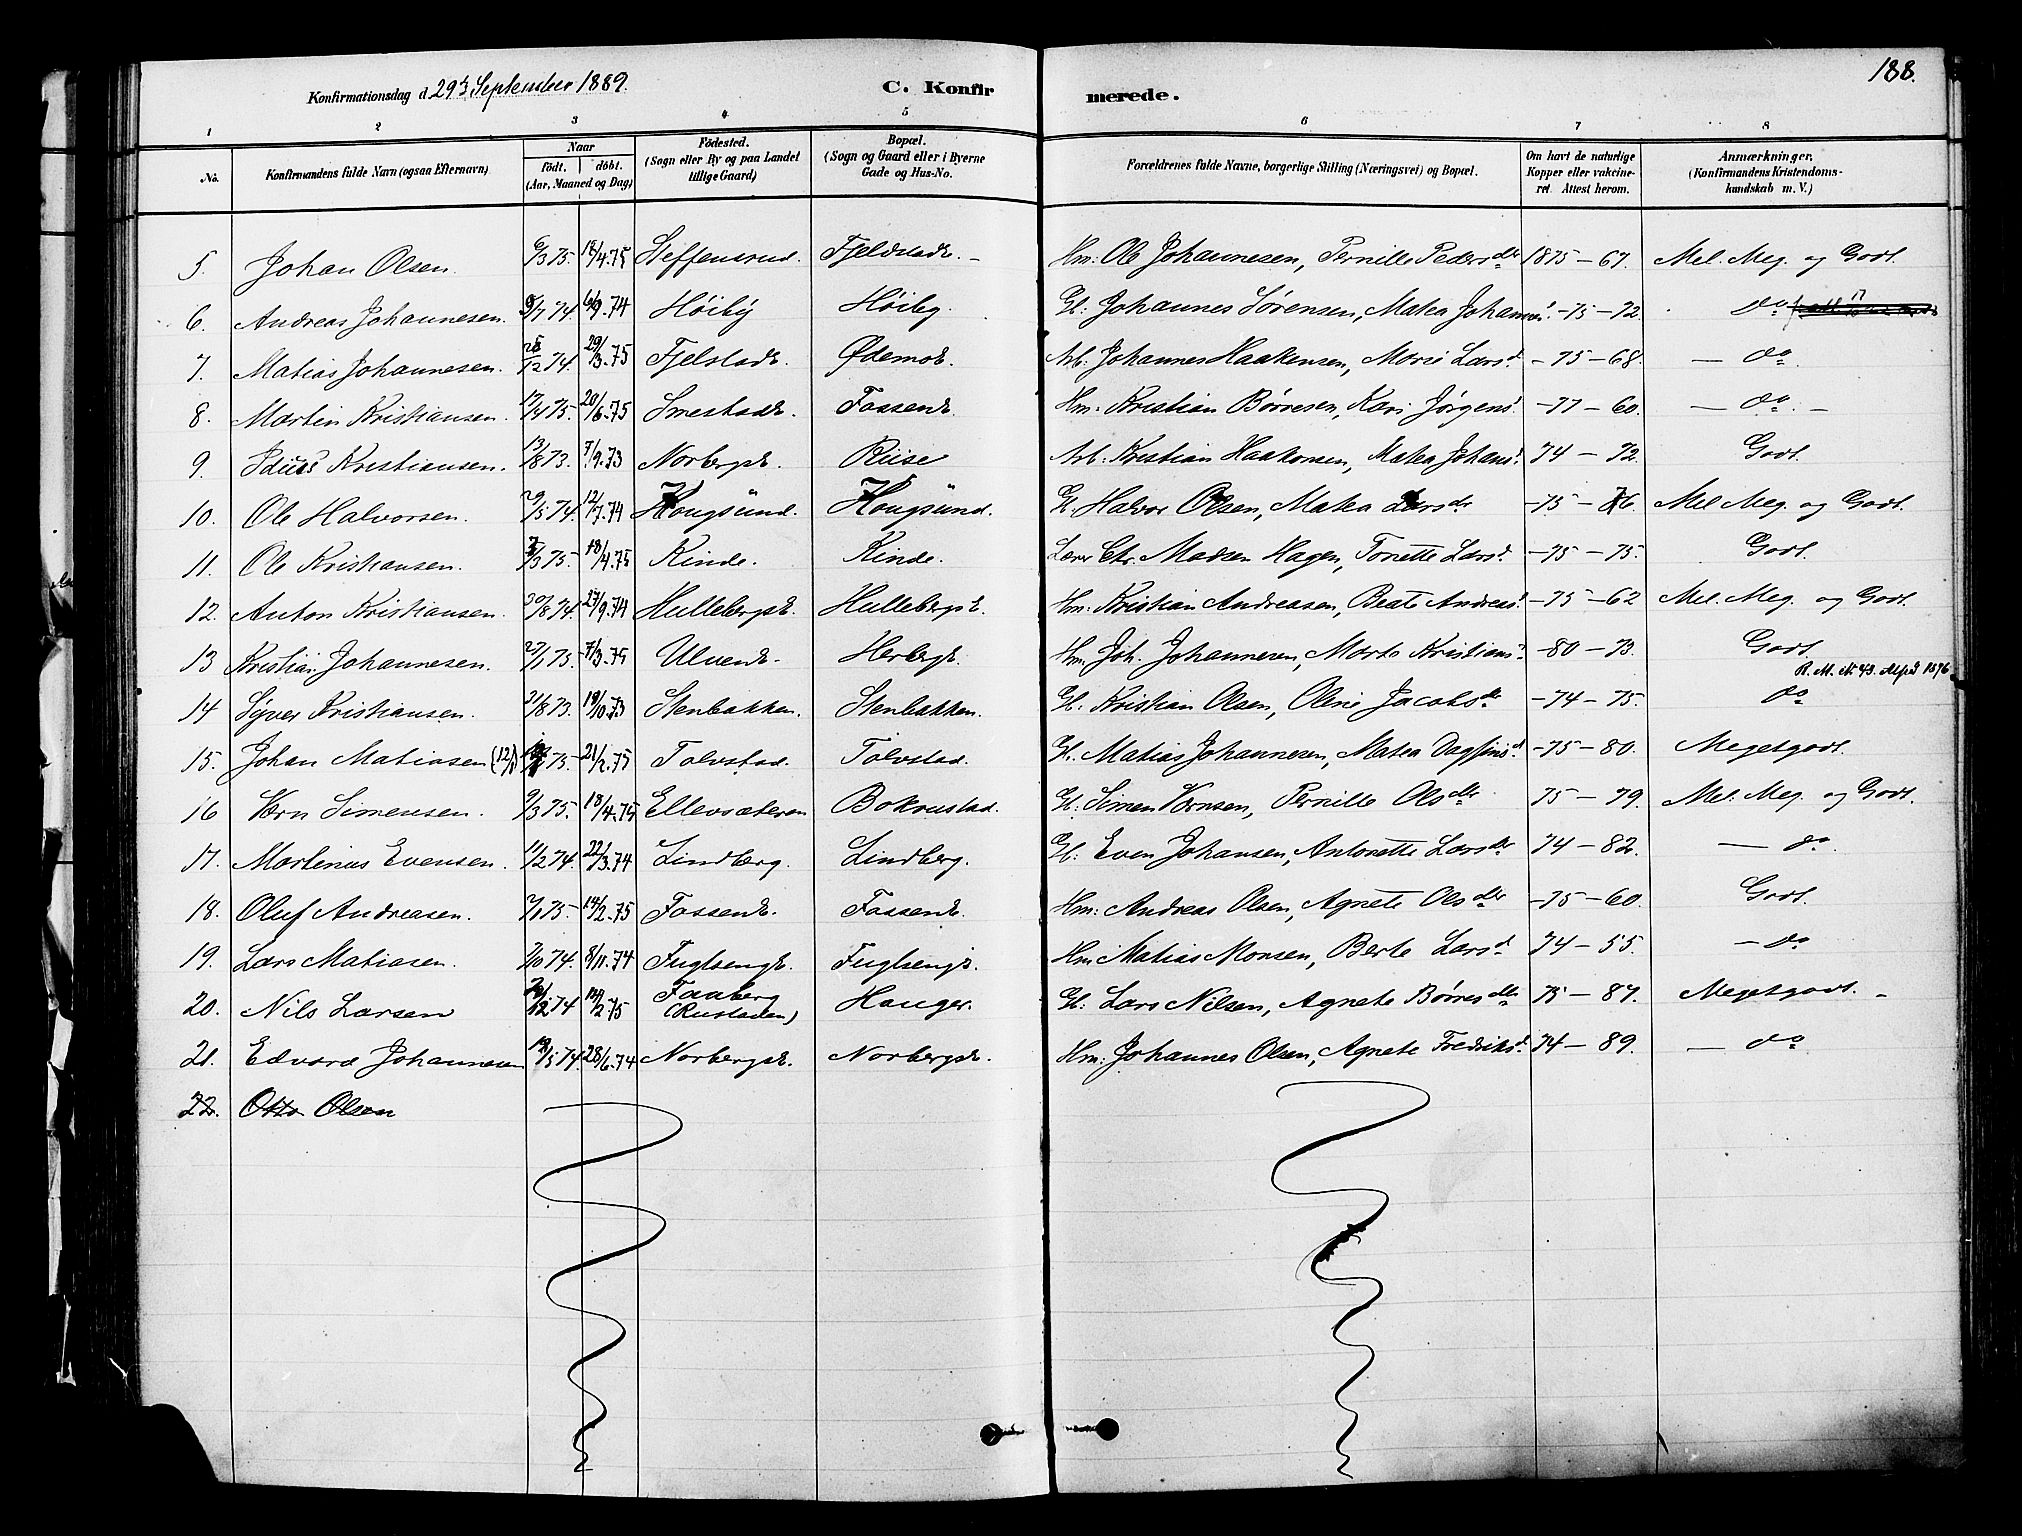 188.
Konfirmationsdag d. 29de September 1889. C. Konfirmerede.
1 2 3 4 5 6 7 8
No. Konfirmandens fulde Navn (ogsaa Efternavn) Naar født. døbt. (Aar, Maaned og Dag) Födested. (Sogn eller By og paa Landet tillige Gaard) Bopæl. (Sogn og Gaard eller i Byerne Gade og Hus-No. Forældrenes fulde Navne, borgerlige Stilling (Næringsvei) og Bopæl. Om havt de naturlige Kopper eller vakcineret. Attest herom. Anmærkninger. (Konfirmandens Kristendomskundskab m. V.)
5. Johan Olsen. 6/3 75. 18/4.75 Steffensrud. Fjeldstade. Hm: Ole Johannesen, Pernille Pedersdr 1875 – 67. Mel. Meg. og Godt.
6. Andreas Johannesen. /7 74. 6/9.74 Höiby Höiby. G: Johannes Sørensen, Matea Johannesd. – 75 – 72. do
7. Matias Johannesen. /12 74. 29/3.75 Fjelstade. Ødemoe. Arb. Johannes Haakensen, Marie Larsd. – 75 – 68. — do
8. Martin Kristiansen. 17/4 75. 20/6.75 Smestade. Fossene. Hm: Kristian Börresen, Kari Jørgensd. – 77 – 60. — do. –
9. Kristiansen. 13/8 73. 7/9.73 Norbergse. Riise Arb. Kristian Haakonsen, Matea Johansd. 74 – 72. Godt.
10. Ole Halvorsen. 29/5 74. 12/7.74 Hougsund. Hougsund. G. Halvor Olsen, Matea Larsdr – 75 – 76. Mel Meg. og Godt.
11. Ole Kristiansen. /3 75. 18/4.75 Kinde. Kinde. Lærer Chr. Madsen Hagen, Tonette Larsd. – 75 – 75. Godt.
12. Anton Kristiansen. 30/8 74. 27/9.74 Hullebergse. Hullebergse. Hm: Kristian Andreasen, Beate Andreasd. – 75 – 62 Mel. Meg. og Godt.
13 Kristian Johannesen. 27/1 75. 7/3.75 Ulvene. Herberge. Hm. Joh. Johannesen, Marte Kristiansd. – 80 – 73. Godt.
14 Syver Kristiansen. 31/8 73. 19/10.73 Stenbakken. Stenbakken. G. Kristian Olsen, Oline Jacobsdr – 74 – 75. do
15. Johan Matiasen (12/1) 75. 21/2.75 Tolvstad. Tolvstad. G. Matias Johannesen, Matea Dagfinsd. – 75 – 80. Megetgodt.
16 Simensen. 9/3 75. 18/4.75 Ellevsæteren Bokrustad. G. Simen Pernille Olsdr 75 – 79. Mel. Meg. og Godt.
17. Martinus Evensen. 11/2 74. 22/3.74 Lindberg. Lindberg. G: Even Johansen, Antonette Larsdr 74 – 82. — do.
18. Oluf Andreasen. 7/1 75. 14/2.75 Fossene. Fossene. Hm: Andreas Olsen, Agnete Olsdr – 75 – 60. Godt.
19. Lars Matiasen. /10 74. 8/11.74 Fuglsenge. Fuglsenge. Hm Matias Monsen, Berte Larsd. 74 – 55. – do
20. Nils Larsen /12 74 14/2.75 Faaberg (Rustaden) Hauger. G: Lars Nilsen, Agnete Børresdr 75 – 87. Megetgodt. –
21. Edvard Johannesen /5 74. 28/6.74 Norbergse. Norbergse. Hm: Johannes Olsen, Agnete Fredriksd. 74 – 89. — do
22. Otto Olsen